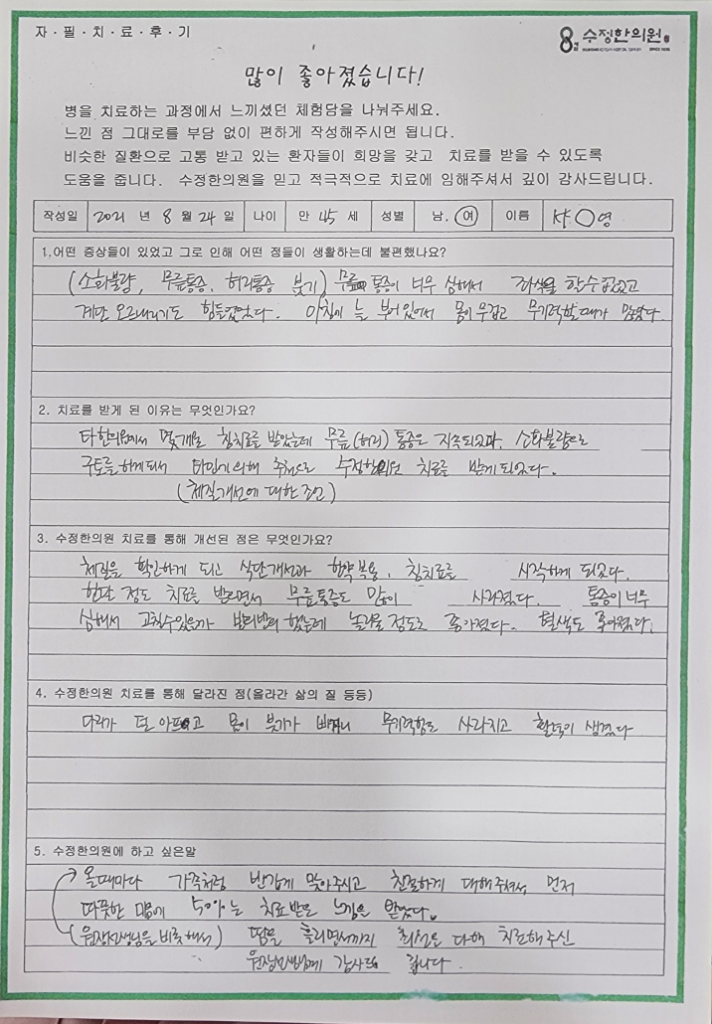 자·필·치·료·후·기
8체질 수정한의원
많이 좋아졌습니다!
병을 치료하는 과정에서 느끼셨던 체험담을 나눠주세요.
느낀 점 그대로를 부담 없이 편하게 작성해주시면 됩니다.
비슷한 질환으로 고통 받고 있는 환자들이 희망을 갖고 치료를 받을 수 있도록
도움을 줍니다. 수정한의원을 믿고 적극적으로 치료에 임해주셔서 깊이 감사드립니다.
작성일 2021 년 8 월 24 일 나이 만 45 세 성별 남. 여 이름 ○영
1.어떤 증상들이 있었고 그로 인해 어떤 점들이 생활하는데 불편했나요?
(소화불량, 무릎통증, 허리통증 붓기) 무릎 통증이 너무 심해서 좌식을 할수없었고
계단 오르내리기도 힘들었었다. 아침에 늘 부어있어서 몸이 무겁고 무기력할때가 많았다.
2. 치료를 받게 된 이유는 무엇인가요?
타한의원에서 몇개월 침치료를 받았는데 무릎(허리) 통증은 지속되었고, 소화불량으로
구토를 하게되서 타인에 의해 추천으로 수정한의원 치료를 받게 되었다.
(체질개선에 대한 조언)
3. 수정한의원 치료를 통해 개선된 점은 무엇인가요?
체질을 확인하게 되고 식단개선과 한약복용, 침치료를 시작하게 되었다.
한달 정도 치료를 받으면서 무릎통증도 많이 사라졌다. 통증이 너무
심해서 고칠수있을까 반신반의 했는데 놀라울 정도로 좋아졌다. 혈색도 좋아졌다.
4. 수정한의원 치료를 통해 달라진 점(올라간 삶의 질 등등)
다리가 덜 아프고 몸이 붓기가 빠지니 무기력함도 사라지고 활력이 생겼다
5. 수정한의원에 하고 싶은말
올때마다 가족처럼 반갑게 맞아주시고 친절하게 대해주셔서, 먼저
따뜻한 마음에 50%는 치료받은 느낌을 받았다.
(원장선생님을 비롯해서) 땀을 흘리면서까지 최선을 다해 치료해주신
원장선생님께 감사를 드립니다.